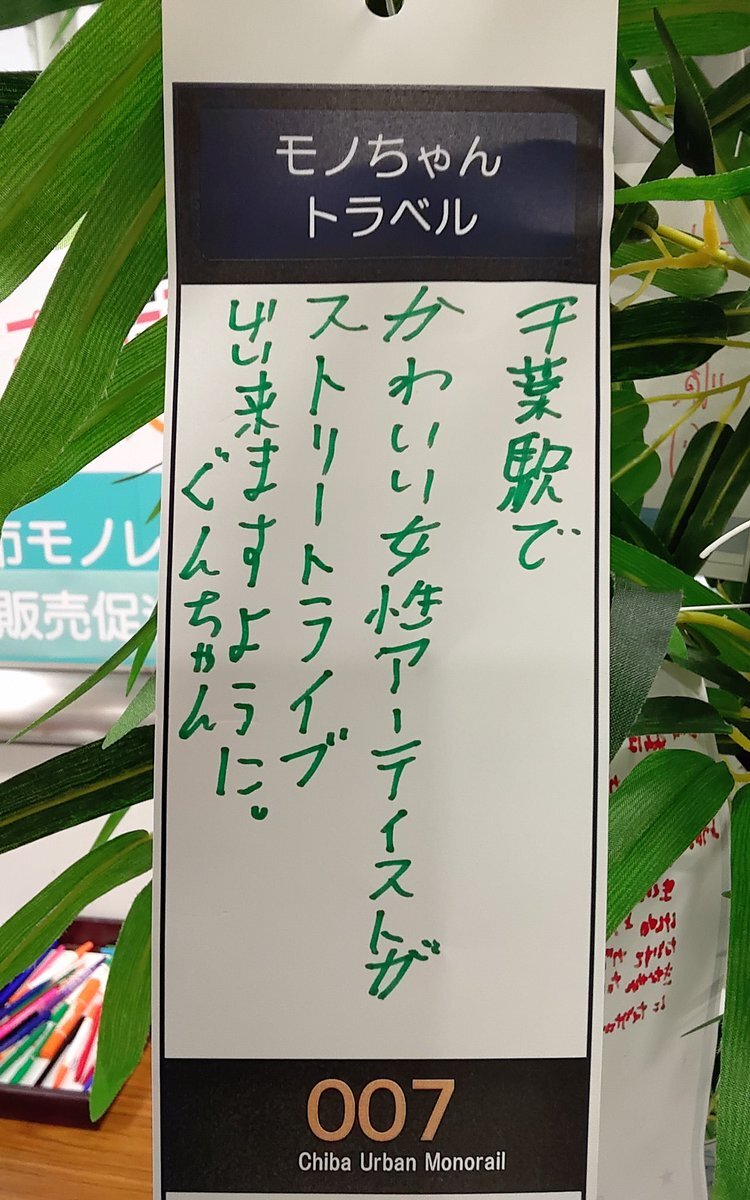 モノちゃん
トラベル
千葉駅で
かわいい女性アーティストが
ストリートライブ
しに来ますように。
ぐんちゃん
007
Chiba Urban Monorail
市モノレ
販売促進